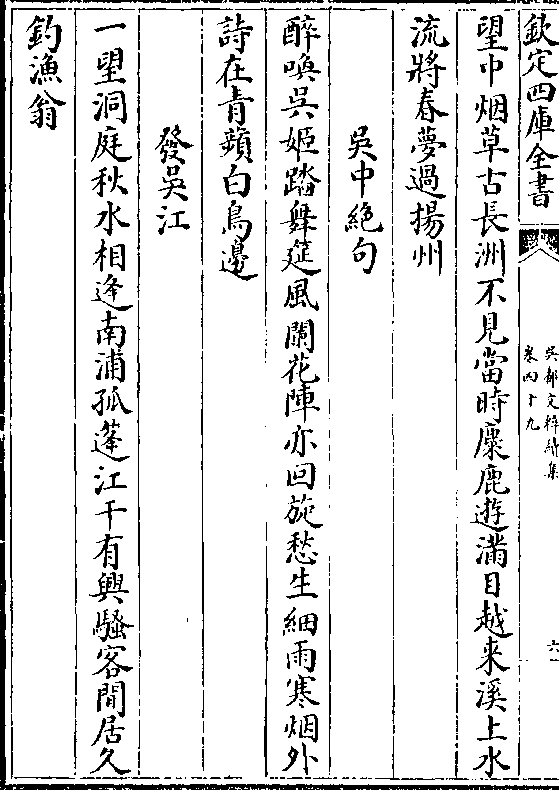 欽定四庫全書
吳都文粹續集
卷四十九
六
望中烟草古長洲不見當時麋鹿遊滿目越来溪上水
流將春夢過揚州
吳中絶句
醉喚吳姬踏舞筵風闌花陣亦回旋愁生細雨寒烟外
詩在青蘋白鳥邊
發吳江
一望洞庭秋水相逢南浦孤蓬江干有興騷客閒居久
釣漁翁